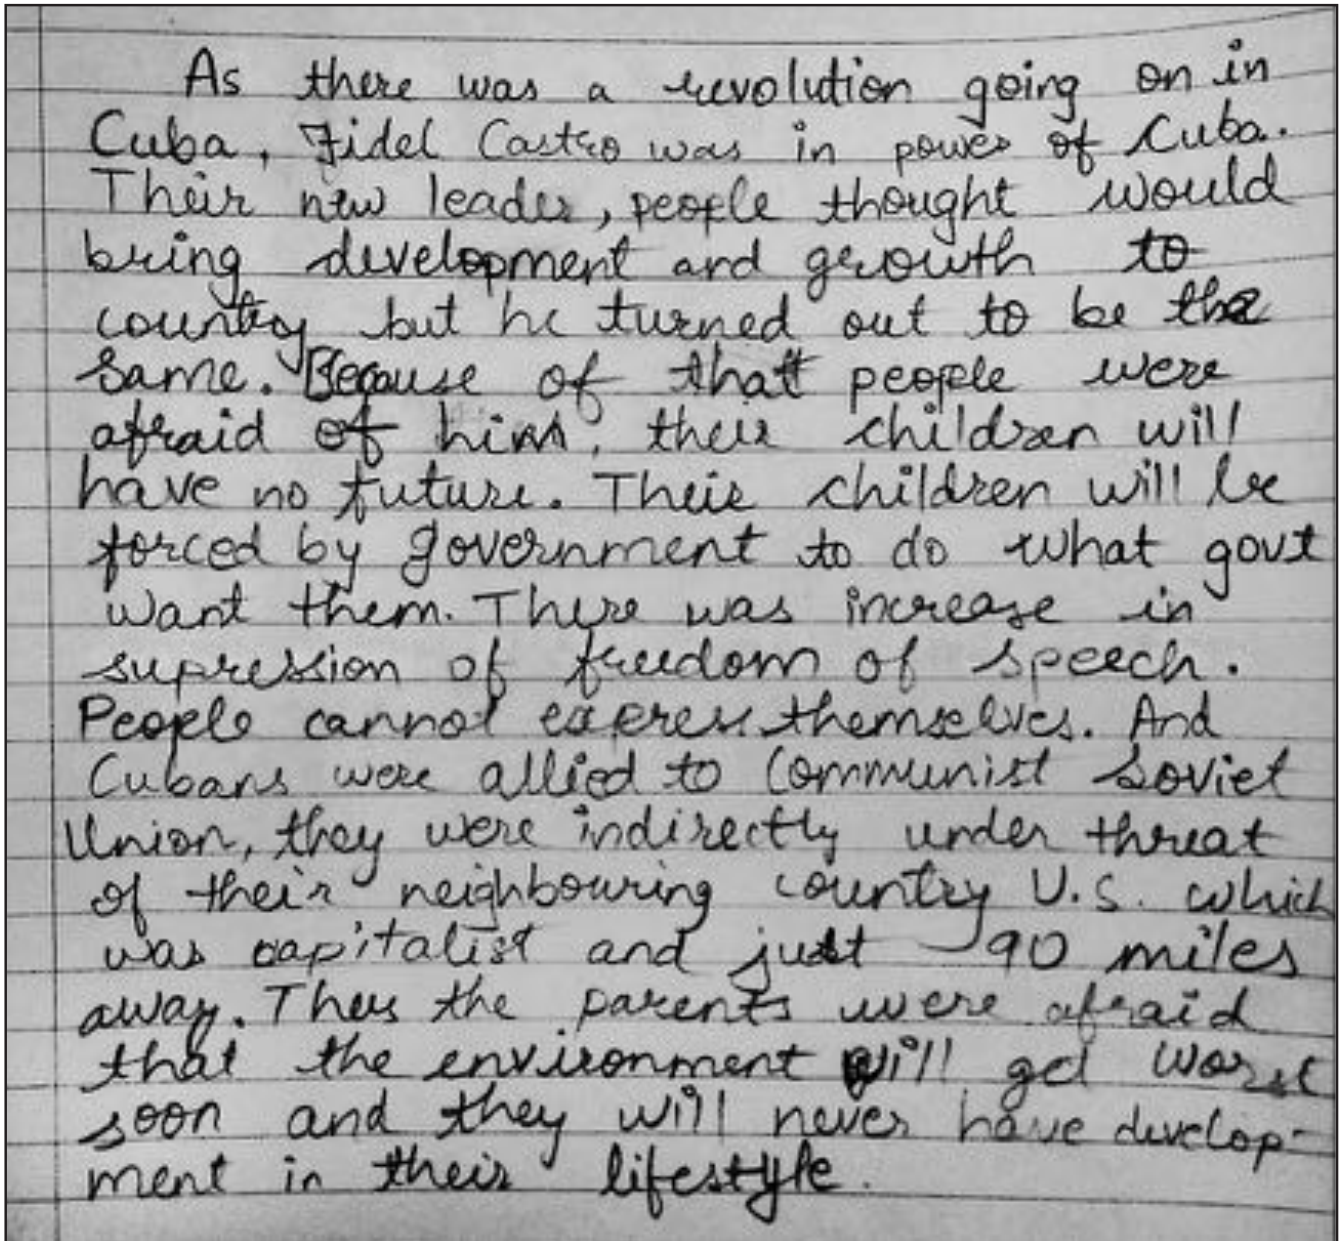 As there was a revolution going on in
Cuba, Fidel Castro was in power of Cuba.
Their new leader, people thought would
bring development and growth to
country but he turned out to be the
same. Because of that people were
afraid of him, their children will
have no future. Their children will be
forced by government to do what govt
want them. There was increase in
supression of freedom of speech.
People cannot express themselves. And
Cubans were allied to Communist Soviet
Union, they were indirectly under threat
of their neighbouring country U.S. which
was capitalist and just 90 miles
away. Thus the parents were afraid
that the environment will get worst
soon and they will never have develop-
ment in their lifestyle.